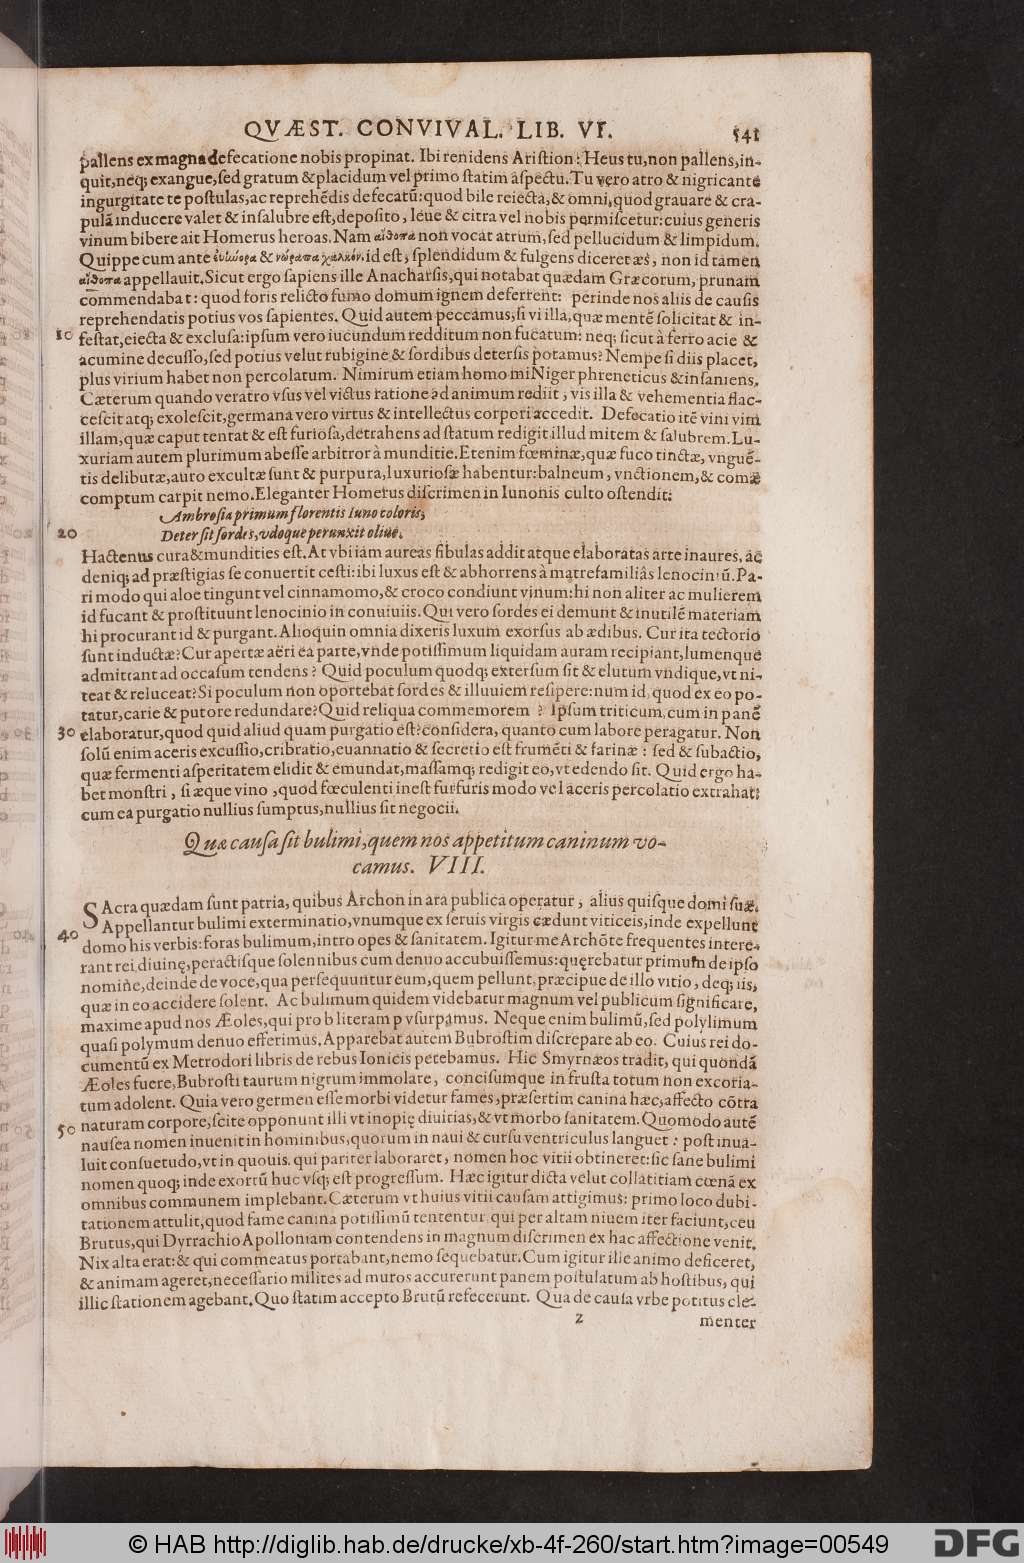 QVÆST. CONVIVAL. LIB. VI. 541
pallens ex magna defecatione nobis propinat. Ibi renidens Aristion: Heus tu, non pallens, in-
quit, neq; exangue, sed gratum & placidum vel primo statim aspectu. Tu vero atro & nigricante
ingurgitate te postulas, ac reprehēdis defecatū: quod bile reiecta, & omni, quod grauare & cra-
pulā inducere valet & insalubre est, deposito, leue & citra vel nobis permiscetur: cuius generis
vinum bibere ait Homerus heroas. Nam αἴθοπα non vocat atrum, sed pellucidum & limpidum.
Quippe cum ante & νώροπα χαλκόν. id est, splendidum & fulgens diceret æs, non id tamen
αἴθοπα appellauit. Sicut ergo sapiens ille Anacharsis, qui notabat quædam Græcorum, prunam
commendabat: quod foris relicto fumo domum ignem deferrent: perinde nos aliis de causis
reprehendatis potius vos sapientes. Quid autem peccamus, si vi illa, quæ mentē solicitat & in-
10 festat, eiecta & exclusa: ipsum vero iucundum redditum non fucatum: neq; sicut à ferro acie &
acumine decusso, sed potius velut rubigine & sordibus detersis potamus? Nempe si diis placet,
plus virium habet non percolatum. Nimirum etiam homo mi Niger phreneticus & insaniens.
Cæterum quando veratro vsus vel victus ratione ad animum rediit, vis illa & vehementia flac-
cescit atq; exolescit, germana vero virtus & intellectus corpori accedit. Defecatio itē vini vim
illam, quæ caput tentat & est furiosa, detrahens ad statum redigit illud mitem & salubrem. Lu-
xuriam autem plurimum abesse arbitror à munditie. Etenim fœminæ, quæ fuco tinctæ, vnguē-
tis delibutæ, auro excultæ sunt & purpura, luxuriosæ habentur: balneum, vnctionem, & comæ
comptum carpit nemo. Eleganter Homerus discrimen in Iunonis culto ostendit:
Ambrosia primum florentis Iuno coloris,
20 Detersit sordes, vdoque perunxit oliuo.
Hactenus cura & mundities est. At vbi iam aureas fibulas addit atque elaboratas arte inaures, ac
deniq; ad præstigias se conuertit cesti: ibi luxus est & abhorrens à matrefamiliâs lenociniū. Pa-
ri modo qui aloe tingunt vel cinnamomo, & croco condiunt vinum: hi non aliter ac mulierem
id fucant & prostituunt lenocinio in conuiuiis. Qui vero sordes ei demunt & inutilē materiam
hi procurant id & purgant. Alioquin omnia dixeris luxum exorsus ab ædibus. Cur ita tectorio
sunt inductæ? Cur apertæ aëri ea parte, vnde potissimum liquidam auram recipiant, lumenque
admittant ad occasum tendens? Quid poculum quodq; extersum sit & elutum vndique, vt ni-
teat & reluceat? Si poculum non oportebat sordes & illuuiem resipere: num id, quod ex eo po-
tatur, carie & putore redundare? Quid reliqua commemorem? Ipsum triticum, cum in panē
30 elaboratur, quod quid aliud quam purgatio est? considera, quanto cum labore peragatur. Non
solū enim aceris excussio, cribratio, euannatio & secretio est frumēti & farinæ: sed & subactio,
quæ fermenti asperitatem elidit & emundat, massamq; redigit eo, vt edendo sit. Quid ergo ha-
bet monstri, si æque vino, quod fœculenti inest furfuris modo vel aceris percolatio extrahat:
cum ea purgatio nullius sumptus, nullius sit negocii.
Quæ causa sit bulimi, quem nos appetitum caninum vo-
camus. VIII.
SAcra quædam sunt patria, quibus Archon in ara publica operatur, alius quisque domi suæ.
40 Appellantur bulimi exterminatio, vnumque ex seruis virgis cædunt viticeis, inde expellunt
domo his verbis: foras bulimum, intro opes & sanitatem. Igitur me Archōte frequentes intere-
rant rei diuinę, peractisque solennibus cum denuo accubuissemus: quęrebatur primum de ipso
nomine, deinde de voce, qua persequuntur eum, quem pellunt, præcipue de illo vitio, deq; iis,
quæ in eo accidere solent. Ac bulimum quidem videbatur magnum vel publicum significare,
maxime apud nos Æoles, qui pro b literam p vsurpamus. Neque enim bulimū, sed polylimum
quasi polymum denuo efferimus. Apparebat autem Bubrostim discrepare ab eo. Cuius rei do-
cumentū ex Metrodori libris de rebus Ionicis petebamus. Hic Smyrnæos tradit, qui quondā
Æoles fuere, Bubrosti taurum nigrum immolare, concisumque in frusta totum non excoria-
tum adolent. Quia vero germen esse morbi videtur fames, præsertim canina hæc, affecto cōtra
50 naturam corpore, scite opponunt illi vt inopię diuitias, & vt morbo sanitatem. Quomodo autē
nausea nomen inuenit in hominibus, quorum in naui & cursu ventriculus languet: post inua-
luit consuetudo, vt in quouis. qui pariter laboraret, nomen hoc vitii obtineret: sic sane bulimi
nomen quoq; inde exortū huc vsq; est progressum. Hæc igitur dicta velut collatitiam cœnā ex
omnibus communem implebant. Cæterum vt huius vitii causam attigimus: primo loco dubi-
tationem attulit, quod fame canina potissimū tententur qui per altam niuem iter faciunt, ceu
Brutus, qui Dyrrachio Apolloniam contendens in magnum discrimen ex hac affectione venit.
Nix alta erat: & qui commeatus portabant, nemo sequebatur. Cum igitur ille animo deficeret,
& animam ageret, necessario milites ad muros accurerunt panem postulatum ab hostibus, qui
illic stationem agebant. Quo statim accepto Brutū refecerunt. Qua de causa vrbe potitus cle-
z menter
© HAB http://diglib.hab.de/drucke/xb-4f-260/start.htm?image=00549
DFG